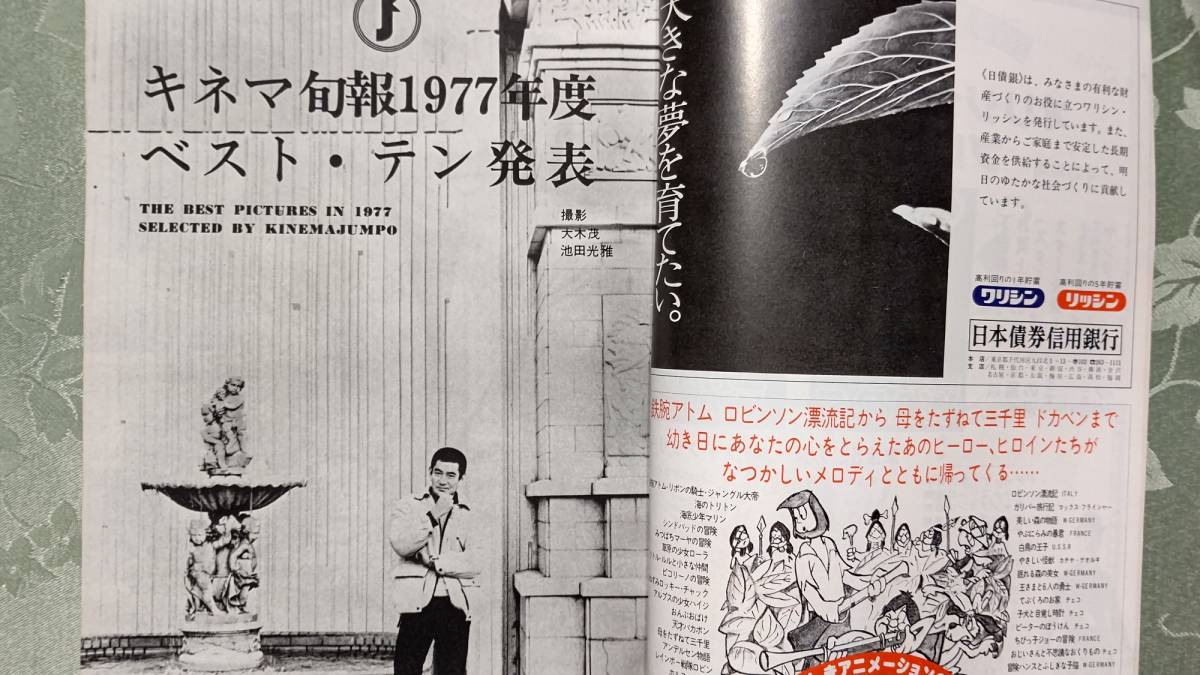 キネマ旬報1977年度
ベスト・テン発表
THE BEST PICTURES IN 1977
SELECTED BY KINEMAJUMPO
撮影
大木茂
池田光雅
大きな夢を育てたい。
《日債銀》は、みなさまの有利な財
産づくりのお役に立つワリシン・
リッシンを発行しています。また、
産業からご家庭まで安定した長期
資金を供給することによって、明
日のゆたかな社会づくりに貢献し
ています。
高利回りの1年貯蓄
ワリシン
高利回りの5年貯蓄
リッシン
日本債券信用銀行
鉄腕アトム ロビンソン漂流記から 母をたずねて三千里 ドカベンまで
幼き日にあなたの心をとらえたあのヒーロー、ヒロインたちが
なつかしいメロディとともに帰ってくる……
アトム・リボンの騎士・ジャングル大帝
海のトリトン
海底少年マリン
シンドバッドの冒険
みつばちマーヤの冒険
草原の少女ローラ
トル・ルルと小さな仲間
ピコリーノの冒険
ロッキー・チャック
アルプスの少女ハイジ
おんぶおばけ
天才バカボン
母をたずねて三千里
アンデルセン物語
レインボー戦隊ロビン
ロビンソン漂流記 ITALY
ガリバー旅行記 マックス・フライシャー
美しい森の物語 W-GERMANY
やぶにらみの暴君 FRANCE
白鳥の王子 U.S.S.R
やさしい怪獣 カチヤ・ゲオルギ
眠れる森の美女 W-GERMANY
王さまと6人の勇士 W-GERMANY
てぶくろのお家 チェコ
子犬と目覚し時計 チェコ
ピーターのぼうけん チェコ
ちびっ子ジョーの冒険 FRANCE
おじいさんと不思議なおくりもの チェコ
冒険ハンスとふしぎな子猫 W-GERMANY
アニメーション